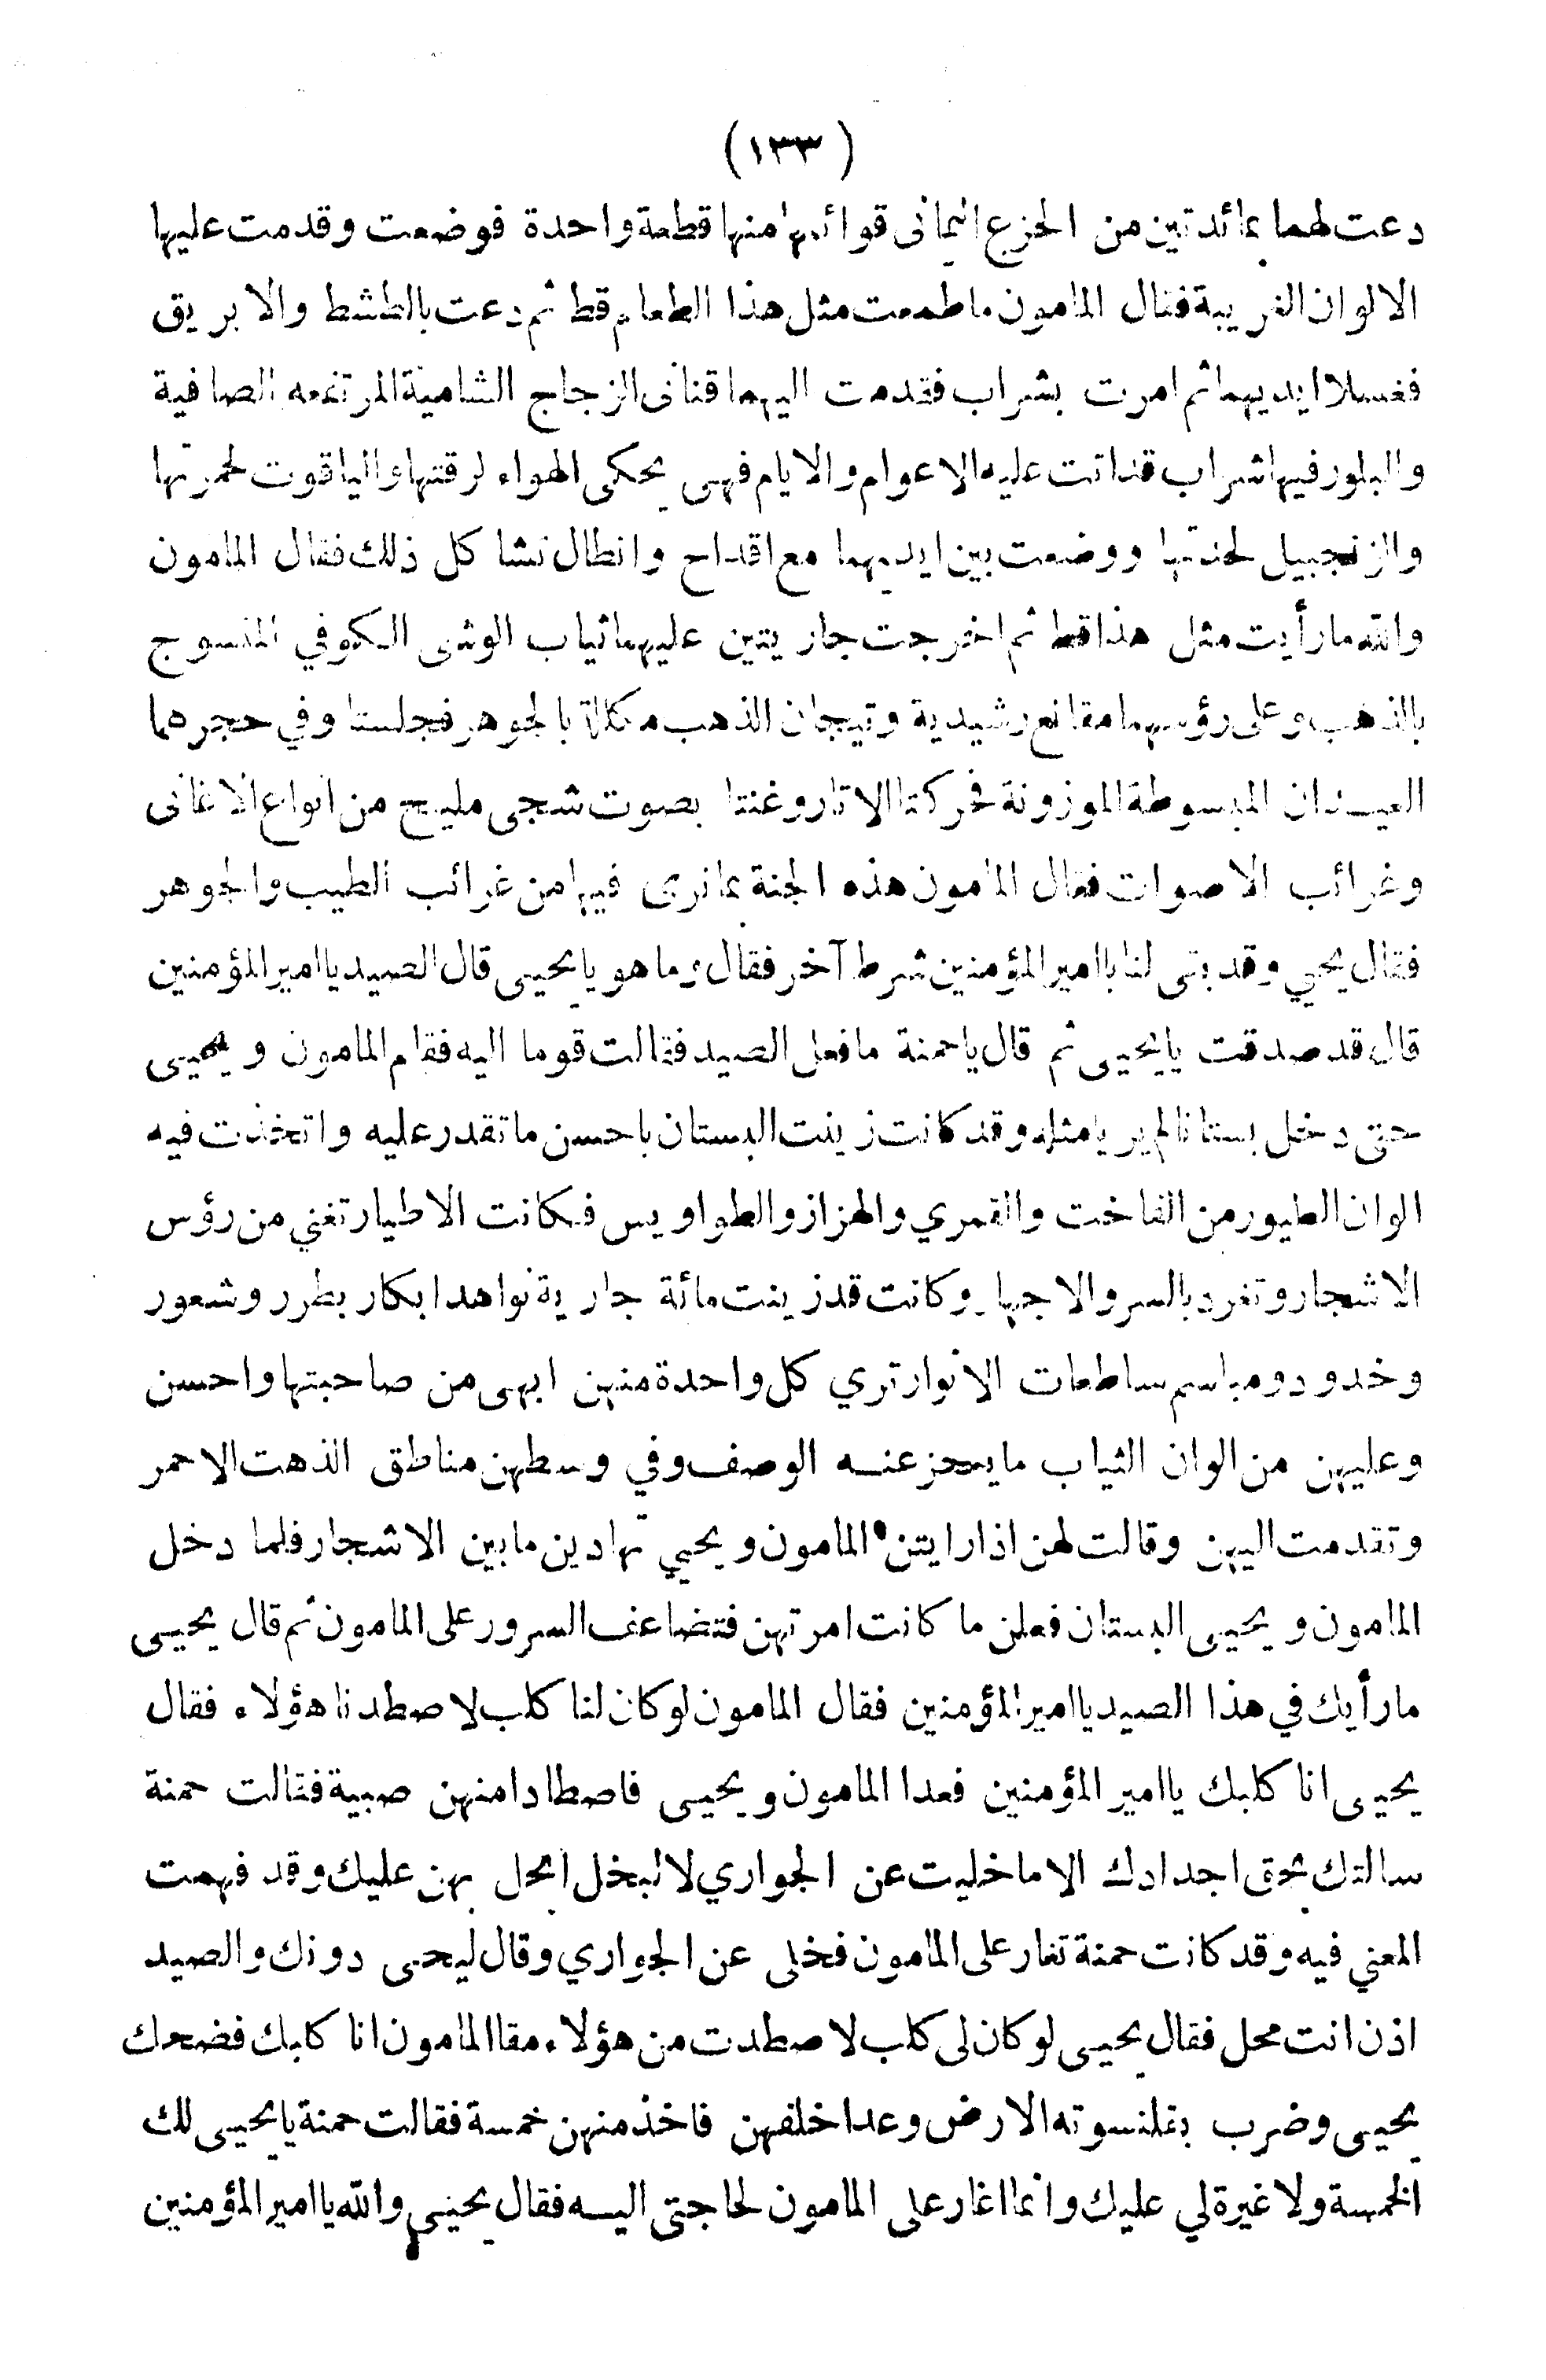 (١٣٣)
دعت لهما بمائدتين من الجزع اليماني قوائمها منها قطعة واحدة فوضعت وقدمت عليها
الالوان الغريبة فقال المامون ماطعمت مثل هذا الطعام قط ثم دعت بالطشط والابريق
فغسلا ايديهما ثم امرت بشراب فقدمت اليهما قناني الزجاج الشامية المرتفعه الصافية
والبلور فيها شراب قد اتت عليه الاعوام والايام فهى يحكى الهواء لرقتها والياقوت لحمرتها
والزنجبيل لحدتها ووضعت بين ايديهما مع اقداح وانطال تشاكل ذلك فقال المامون
والله مارأيت مثل هذا قط ثم اخرجت جاريتين عليهما ثياب الوشى الكوفي المنسوج
بالذهب وعلى رؤسهما مقانع رشيدية وتيجان الذهب مكللة بالجوهر فجلستا وفي حجرهما
العيدان المبسوطة الموزونة فحركتا الاتار وغنتا بصوت شجى مليح من انواع الاغانى
وغرائب الاصوات فقال المامون هذه الجنة بما نرى فيها من غرائب الطيب والجوهر
فقال يحيي وقد بقى لنا ياامير المؤمنين شرط آخر فقال وما هو يايحيى قال الصيد ياامير المؤمنين
قال قد صدقت يايحيى ثم قال ياحمنة مافعل الصيد فقالت قوما اليه فقام المامون ويحيى
حتى دخل بستانا لم يريا مثله وقد كانت زينت البستان باحسن ماتقدر عليه واتخذت فيه
الوان الطيور من الفاخت والقمري والهزاز والطواويس فكانت الاطيار تغني من رؤس
الاشجار وتغرد بالسر والاجهار وكانت قد زينت مائة جارية نواهد ابكار بطرر وشعور
وخدود ومباسم ساطعات الانوار تري كل واحدة منهن ابهى من صاحبتها واحسن
وعليهن من الوان الثياب مايعجز عنه الوصف وفي وسطهن مناطق الذهت الاحمر
وتقدمت اليهن وقالت لهن اذا رايتن المامون ويحيي تهادين مابين الاشجار فلما دخل
المامون ويحيى البستان فعلن ما كانت امرتهن فتضاعف السرور على المامون ثم قال يحيى
مارأيك في هذا الصيد ياامير المؤمنين فقال المامون لو كان لنا كلب لاصطدنا هؤلاء فقال
يحيى انا كلبك ياامير المؤمنين فعدا المامون ويحيى فاصطادا منهن صبية فقالت حمنة
سالتك بحق اجدادك الا ماخليت عن الجواري لا لبخل ابخل بهن عليك وقد فهمت
المعني فيه وقد كانت حمنة تغار على المامون فخلى عن الجواري وقال ليحى دونك والصيد
اذن انت محل فقال يحيى لو كان لى كلب لاصطدت من هؤلاء مقا المامون انا كلبك فضحك
يحيى وضرب بقلنسوته الارض وعدا خلفهن فاخذ منهن خمسة فقالت حمنة يايحيى لك
الخمسة ولا غيرة لي عليك وانما اغار على المامون لحاجتى اليه فقال يحيى والله ياامير المؤمنين